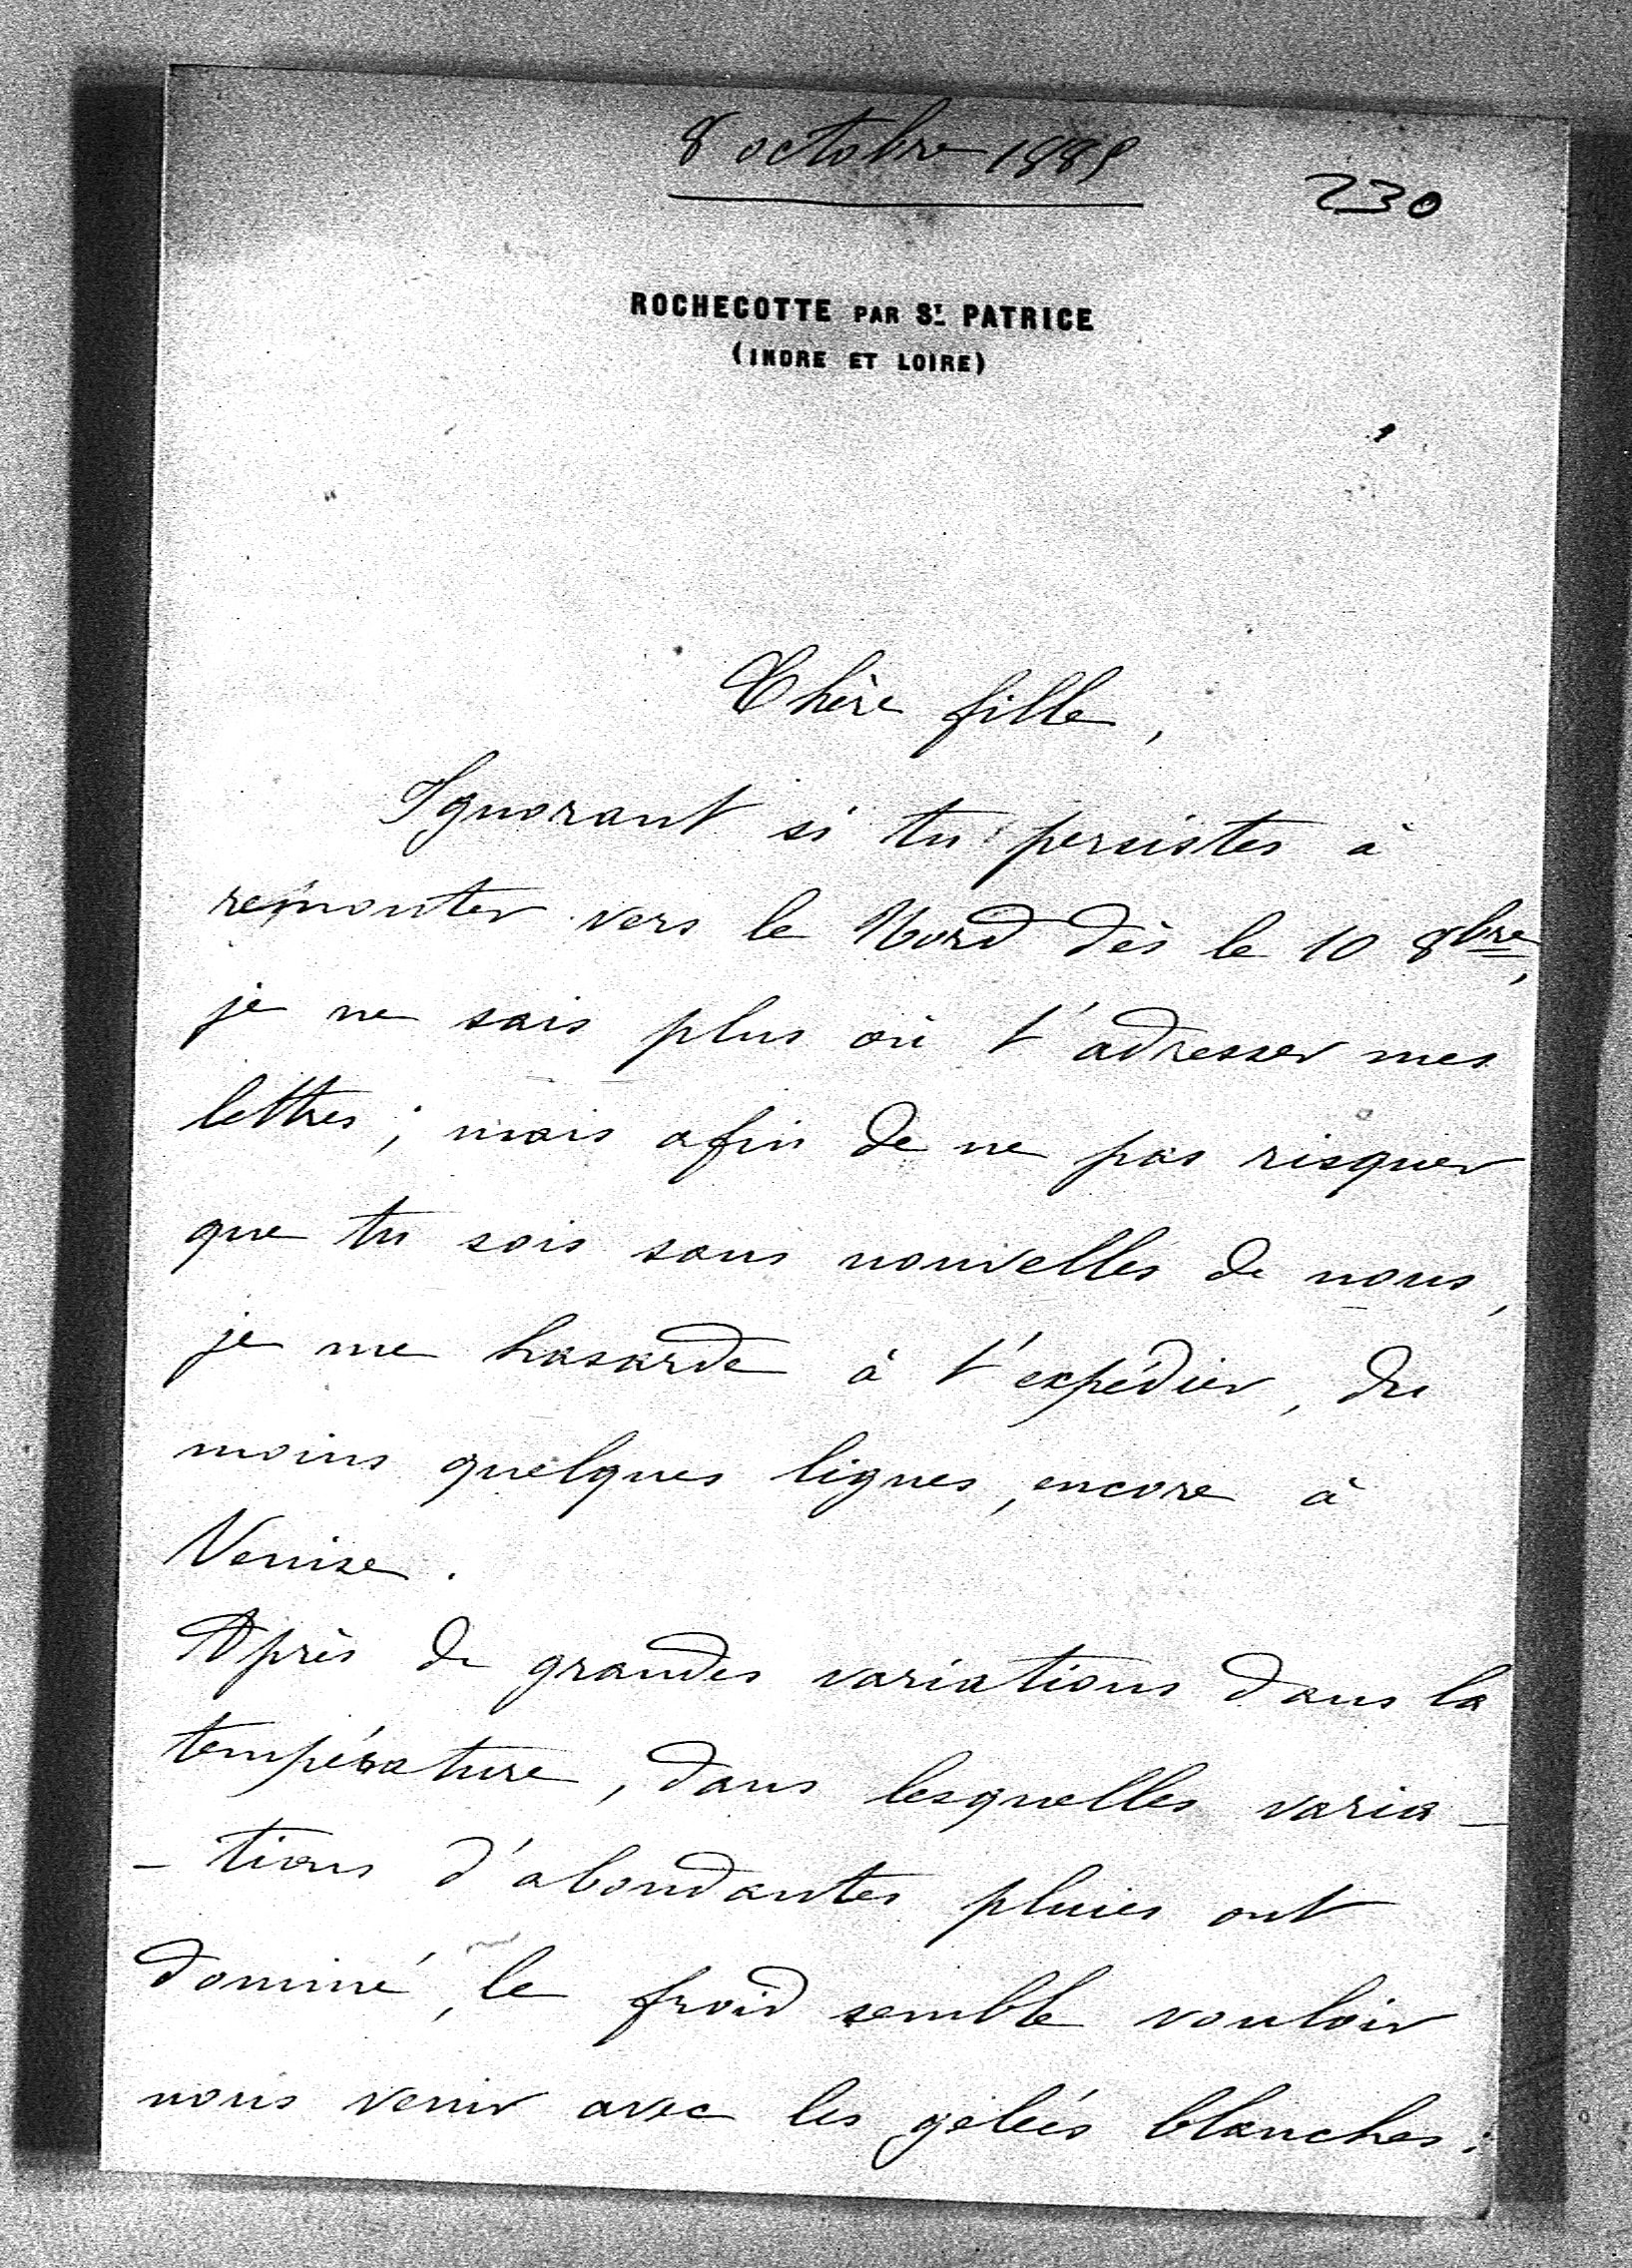 8 octobre 1889
230
ROCHECOTTE PAR ST PATRICE
(INDRE ET LOIRE)
Chère fille,
Ignorant si tu persistes à
remonter vers le Nord dès le 10 8bre,
je ne sais plus où t'adresser mes
lettres ; mais afin de ne pas risquer
que tu sois sans nouvelles de nous,
je me hasarde à t'expédier, du
moins quelques lignes, encore à
Venise.
Après de grandes variations dans la
température, dans lesquelles varia-
-tions d'abondantes pluies ont
dominé, le froid semble vouloir
nous venir avec les gelées blanches :